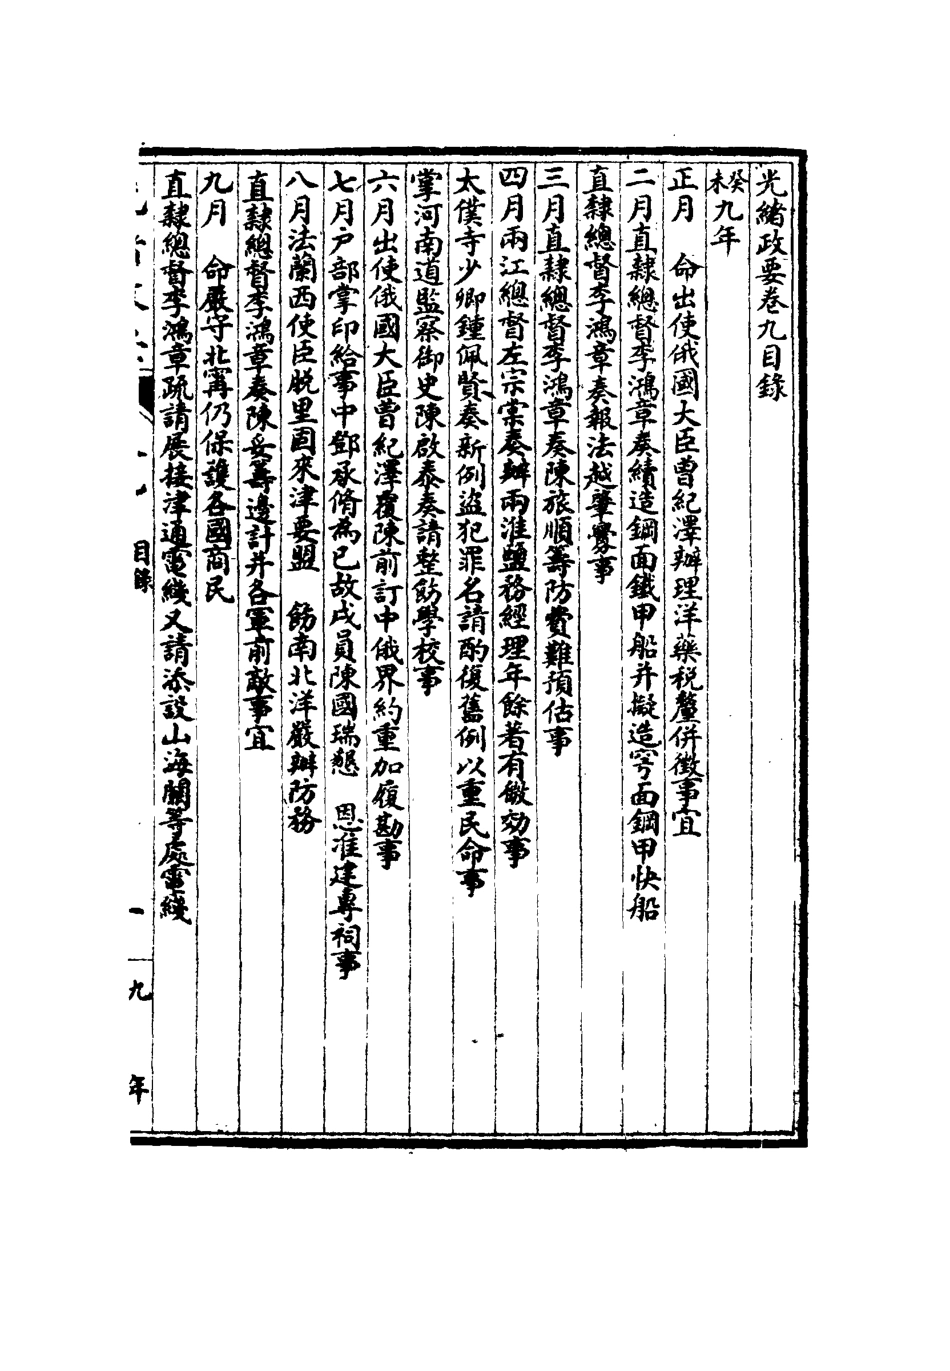 光緒政要卷九目錄
癸未九年
正月　命出使俄國大臣曾紀澤辦理洋藥稅釐併徵事宜
二月直隸總督李鴻章奏續造鋼面鐵甲船并擬造穹面鋼甲快船
直隸總督李鴻章奏報法越肇釁事
三月直隸總督李鴻章奏陳旅順籌防費難預估事
四月兩江總督左宗棠奏辦兩淮鹽務經理年餘著有徵効事
太僕寺少卿鍾佩賢奏新例盜犯罪名請酌復舊例以重民命事
掌河南道監察御史陳啟泰奏請整飭學校事
六月出使俄國大臣曾紀澤覆陳前訂中俄界約重加履勘事
七月戶部掌印給事中鄧承脩為已故戍員陳國瑞懇　恩准建專祠事
八月法蘭西使臣脫里固來津要盟　飭南北洋嚴辦防務
直隸總督李鴻章奏陳妥籌邊計并各軍前敵事宜
九月　命嚴守北寗仍保護各國商民
直隸總督李鴻章疏請展接津通電綫又請添設山海關等處電綫
目錄
一
九年